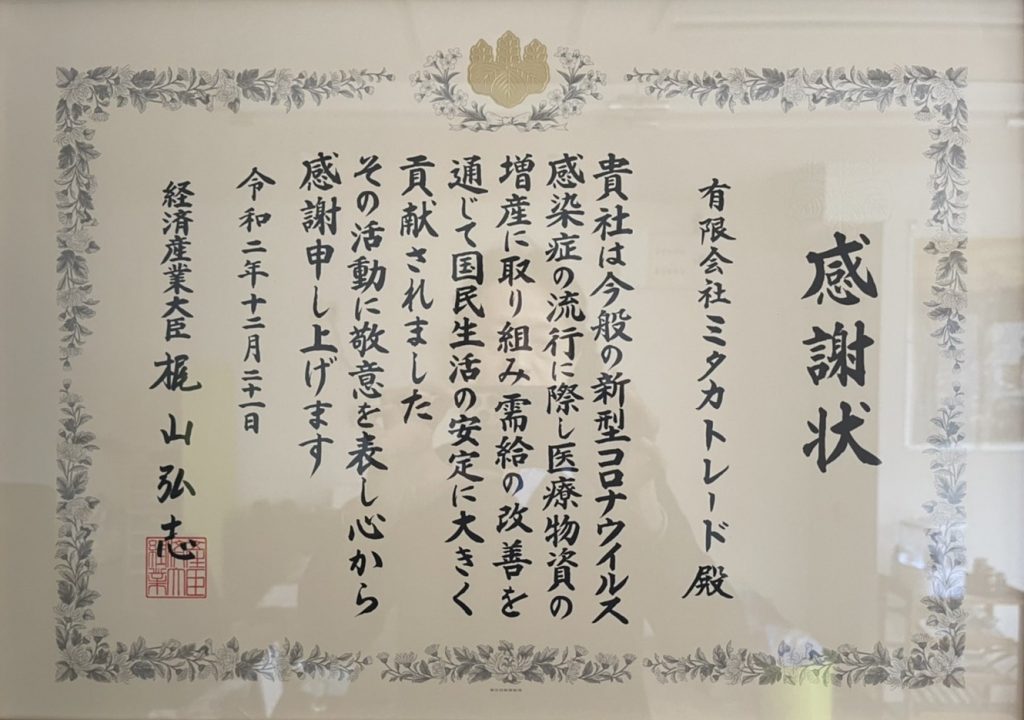 感謝状
有限会社ミタカトレード殿
貴社は今般の新型コロナウイルス
感染症の流行に際し医療物資の
増産に取り組み需給の改善を
通じて国民生活の安定に大きく
貢献されました
その活動に敬意を表し心から
感謝申し上げます
令和二年十二月二十一日
経済産業大臣 梶山弘志